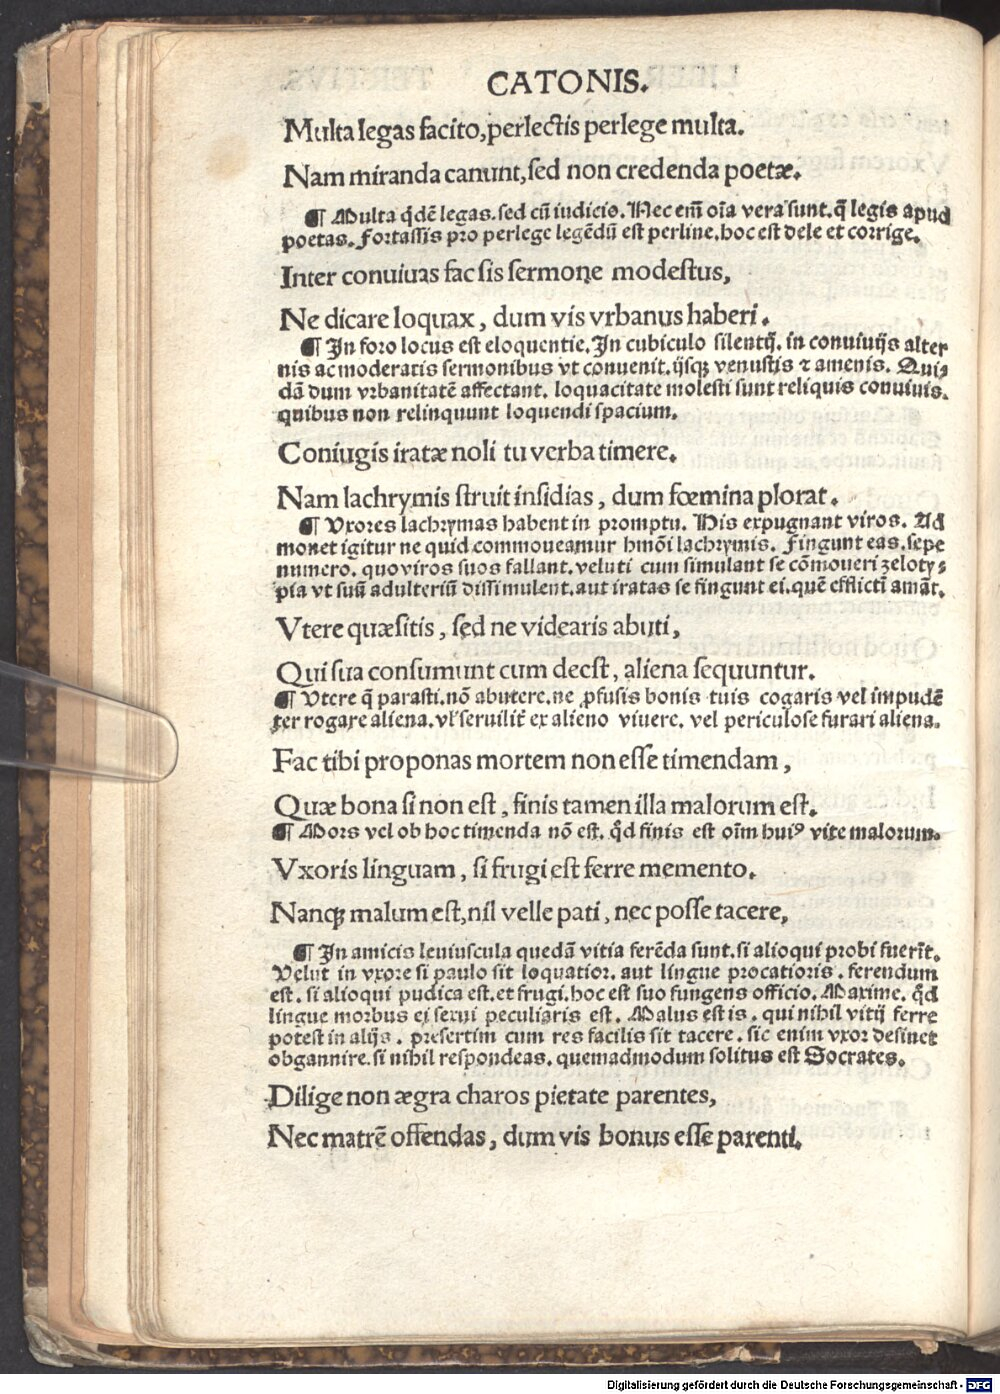 CATONIS.
Multa legas facito, perlectis perlege multa.
Nam miranda canunt, sed non credenda poetæ.
¶ Multa qdẽ legas. sed cũ iudicio. Nec em̃ oĩa vera sunt. q̃ legis apud
poetas. Fortassis pro perlege legẽdũ est perline. hoc est dele et corrige.
Inter conuiuas fac sis sermone modestus,
Ne dicare loquax, dum vis vrbanus haberi.
¶ In foro locus est eloquentie. In cubiculo silentij. in conuiuijs alter
nis ac moderatis sermonibus vt conuenit. ijsqꝫ venustis ⁊ amenis. Qui⸗
dã dum vrbanitatẽ affectant. loquacitate molesti sunt reliquis conuiuis.
quibus non relinquunt loquendi spacium.
Coniugis iratæ noli tu verba timere.
Nam lachrymis struit insidias, dum fœmina plorat.
¶ Vxores lachrymas habent in promptu. His expugnant viros. Ad
monet igitur ne quid commoueamur hmõi lachrymis. Fingunt eas. sepe
numero. quo viros suos fallant. veluti cum simulant se cõmoueri zeloty⸗
pia vt suũ adulteriũ dissimulent. aut iratas se fingunt ei. quẽ efflictĩ amãt.
Vtere quæsitis, sed ne videaris abuti,
Qui sua consumunt cum deest, aliena sequuntur.
¶ Vtere q̃ parasti. nõ abutere. ne ꝓfusis bonis tuis cogaris vel impudẽ
ter rogare aliena. vl' seruilit̃ ex alieno viuere. vel periculose furari aliena.
Fac tibi proponas mortem non esse timendam,
Quæ bona si non est, finis tamen illa malorum est.
¶ Mors vel ob hoc timenda nõ est. qd̃ finis est oĩm huiꝰ vite malorum.
Vxoris linguam, si frugi est ferre memento.
Nanqꝫ malum est, nil velle pati, nec posse tacere,
¶ In amicis leuiuscula quedã vitia ferẽda sunt. si alioqui probi fuerĩt.
Velut in vxore si paulo sit loquatior. aut lingue procatioris. ferendum
est. si alioqui pudica est. et frugi. hoc est suo fungens officio. Maxime. qd̃
lingue morbus ei sexui peculiaris est. Malus est is. qui nihil vitij ferre
potest in alijs. presertim cum res facilis sit tacere. sic enim vxor desinet
obgannire. si nihil respondeas. quemadmodum solitus est Socrates.
Dilige non ægra charos pietate parentes,
Nec matrẽ offendas, dum vis bonus esse parenti.
Digitalisierung gefördert durch die Deutsche Forschungsgemeinschaft - DFG